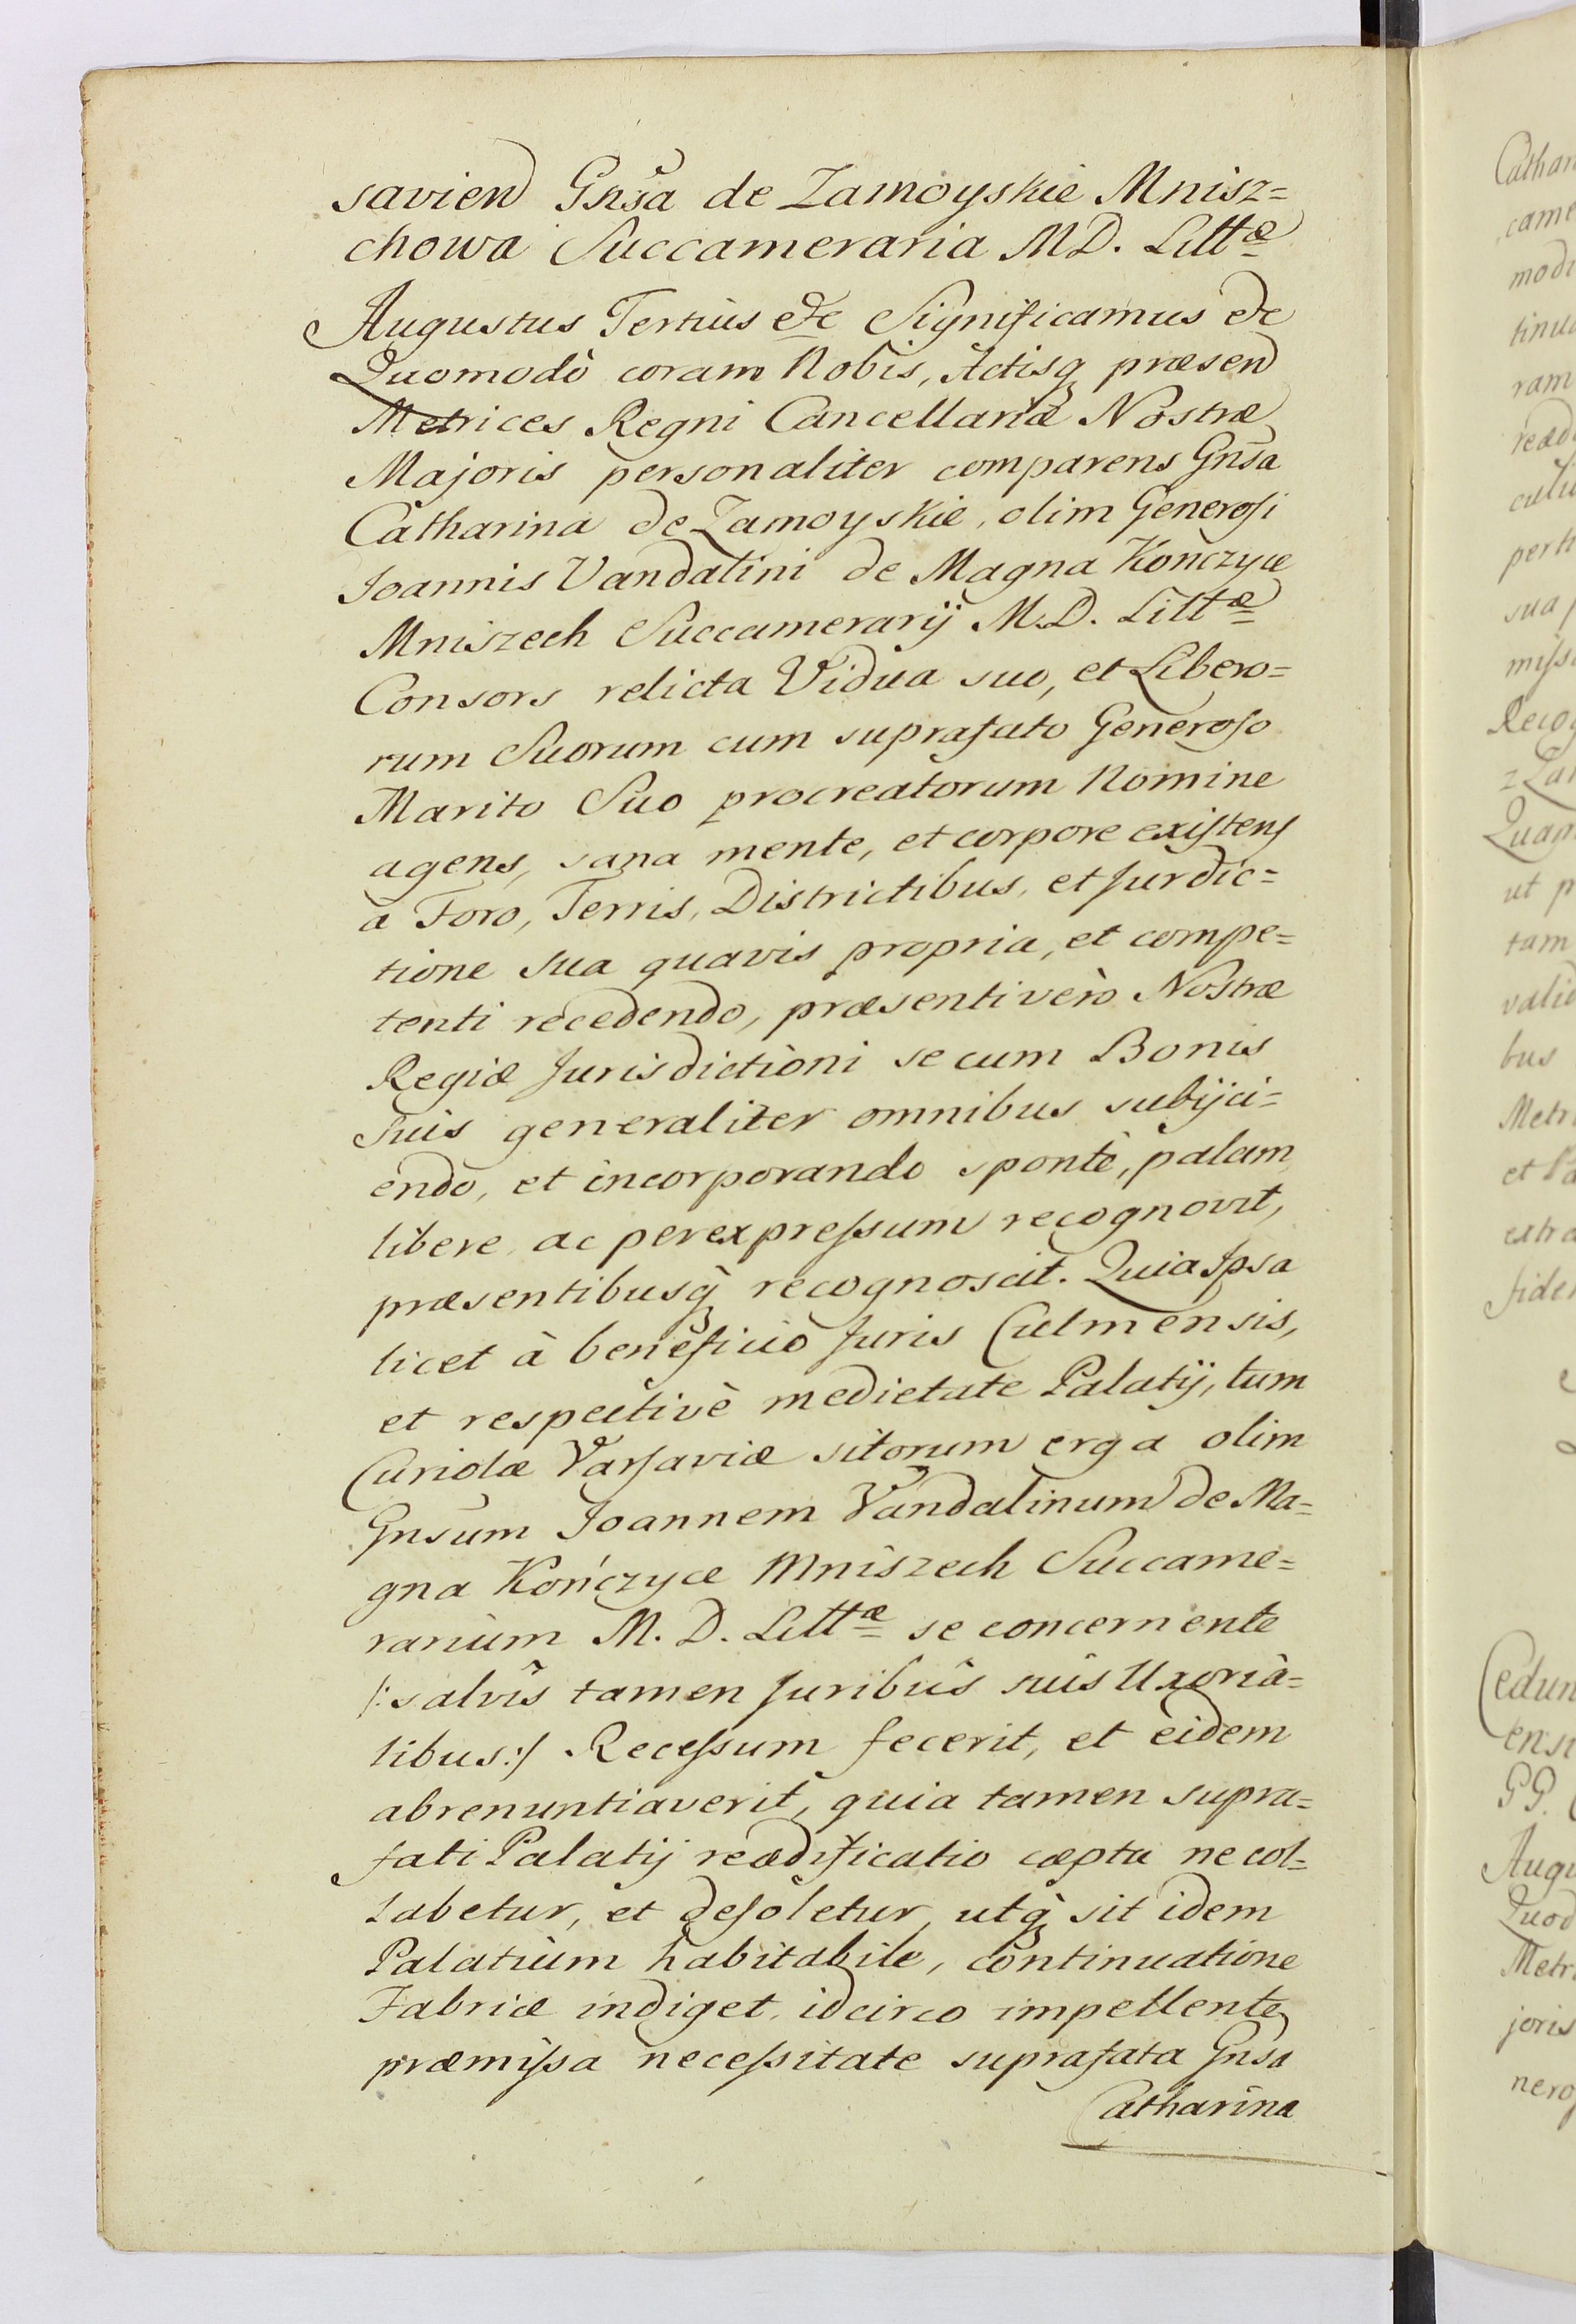 savien Gnsa de Zamoyskie Mnisz=
chowa Succameraria M D. Littæ
Augustus Tertius &c Significamus &c
Quomodò coram Nobis, Actisq præsen
Metrices Regni Cancellariæ Nostræ
Majoris personaliter comparens Gnsa
Catharina de Zamoyskie, olim Generosi
Joannis Vandalini de Magna Kończyce
Mniszech Succamerarij M.D. Littæ
Consors relicta Vidua suo, et Libero=
rum Suorum cum suprafato Generoso
Marito Suo procreatorum Nomine
agens, sana mente, et corpore existens
a Foro, Terris, Districtibus, et Jurdic=
tione sua quavis propria, et compe=
tenti recedendo, præsenti verò Nostræ
Regiæ Jurisdictioni se cum Bonis
Suis generaliter omnibus subijci=
endo, et incorporando spontè, palam
libere ac per expressum recognovit,
præsentibusq recognoscit. Quia Ipsa
licet à beneficio Juris Culmensis,
et respectivè medietate Palatij, tum
Curiolæ Varsaviæ sitorum erga olim
Gnsum Joannem Vandalinum de Ma=
gna Kończyce Mniszech Succame=
rarium M. D. Littæ se concernente
/: salvis tamen Juribus suis Uxoria=
libus :/ Recessum fecerit, et eidem
abrenuntiaverit, quia tamen supra=
fati Palatij reædificatio cæpta ne col=
labetur, et desoletur, utq sit idem
Palatium habitabile, continuatione
Fabricæ indiget, idcirco impellente
præmissa necessitate suprafata Gnsa
Catharina